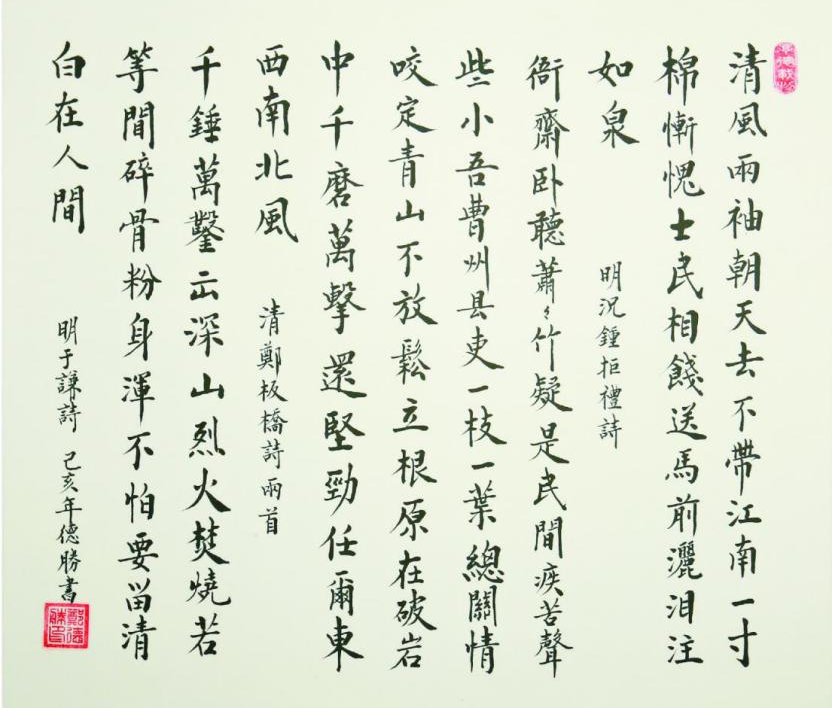 厚德載物
清風兩袖朝天去不帶江南一寸
棉慚愧士民相餞送馬前灑泪注
如泉
明況鍾拒禮詩
衙齋卧聽蕭々竹疑是民間疾苦聲
些小吾曹州县吏一枝一葉總關情
咬定青山不放鬆立根原在破岩
中千磨萬擊還堅勁任爾東
西南北風
清鄭板橋詩兩首
千錘萬鑿出深山烈火焚燒若
等間碎骨粉身渾不怕要留清
白在人間
明于謙詩 己亥年德勝書
鄭德勝印